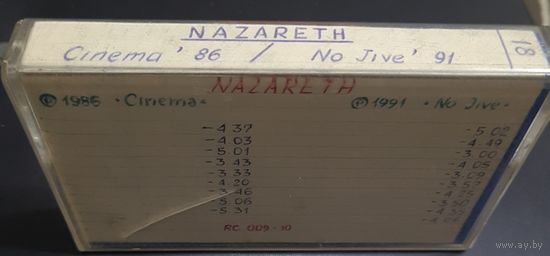 NAZARETH
Cinema '86 / No Jive' 91
18
NAZARETH
© 1986 • Cinema •
© 1991 • No Jive •
- 4 37
- 4 03
- 5 01
- 3 43
- 3 33
- 4 20
- 3 46
- 5 06
- 5 31
- 5 02
- 4 49
- 3 00
- 4 05
- 3 09
- 3 57
RC 009-10
www.ay.by